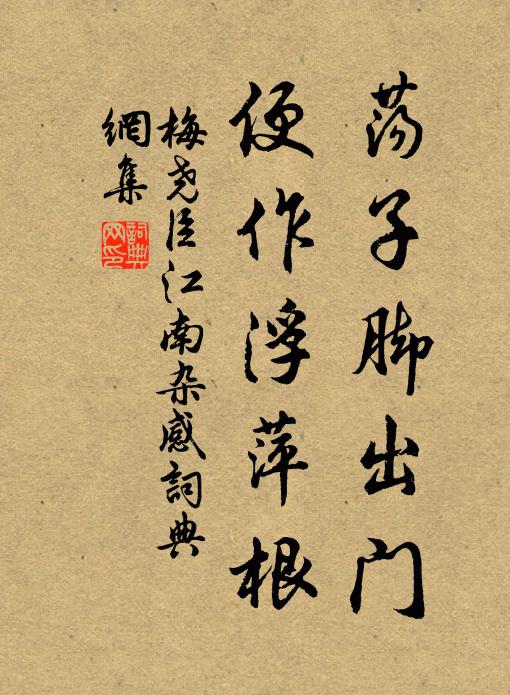 荡子脚出门
便作浮萍根
梅尧臣江南杂感詞典
網集
詞典
网印